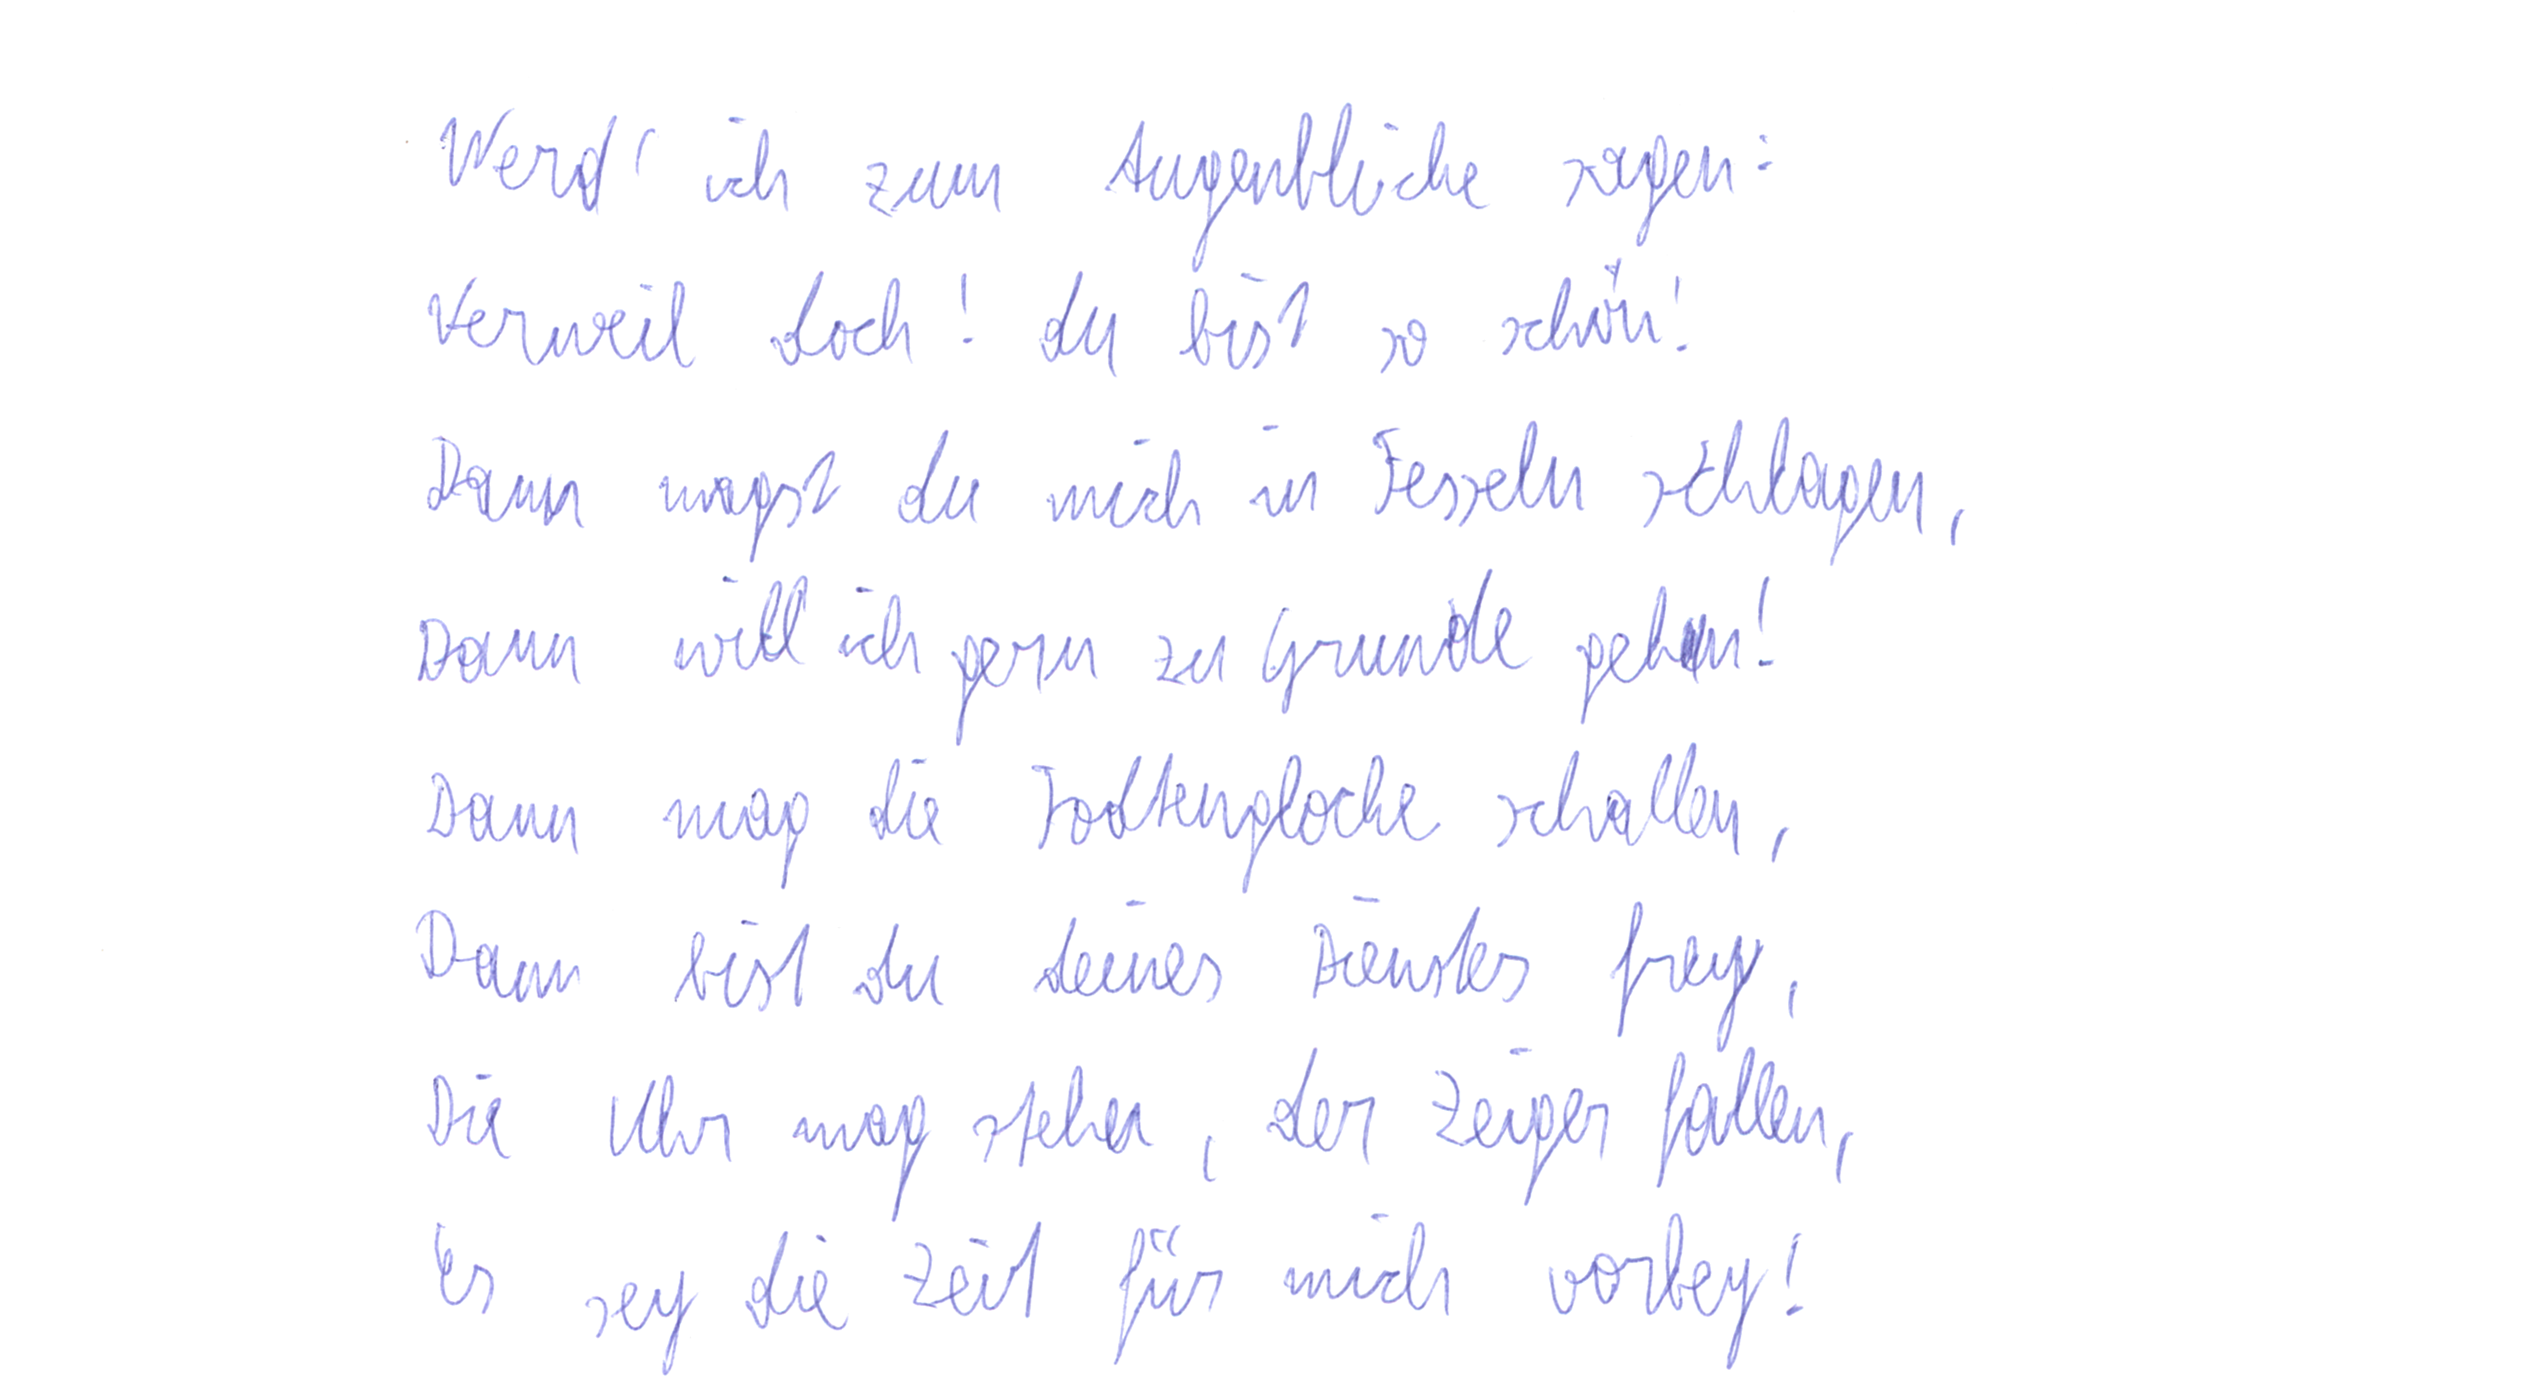 Werd' ich zum Augenblicke sagen:
Verweil doch! du bist so schön!
Dann magst du mich in Fesseln schlagen,
Dann will ich gern zu Grunde gehen!
Dann mag die Todtenglocke schallen,
Dann bist du deines Dienstes frey,
Die Uhr mag stehen, der Zeiger fallen,
Es sey die Zeit für mich vorbey!